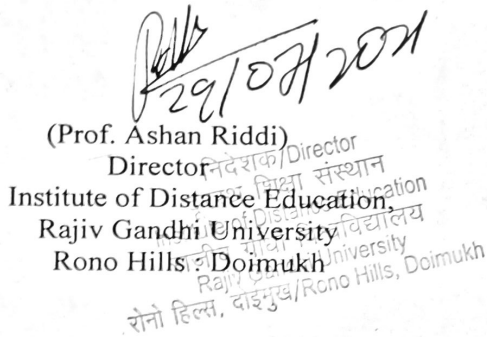 29/07/2021
(Prof. Ashan Riddi)
Director
Institute of Distance Education,
Rajiv Gandhi University
Rono Hills : Doimukh
निदेशक/Director
शिक्षा संस्थान
Institute of Distance Education
राजीव गांधी विश्वविद्यालय
Rajiv Gandhi University
रोनो हिल्स, दोईमुख/Rono Hills, Doimukh